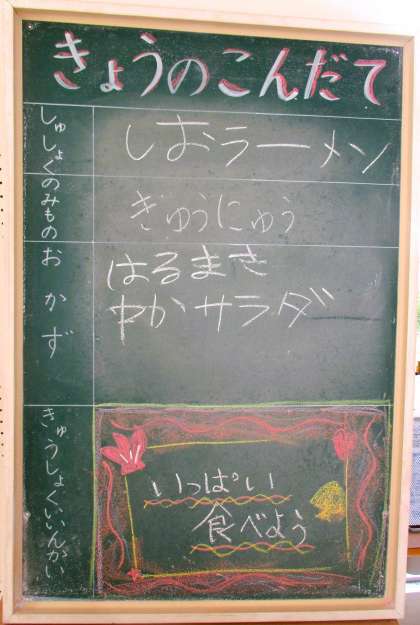 きょうのこんだて
しゅしょく
しおラーメン
のみもの
ぎゅうにゅう
おかず
はるまき
中かサラダ
きゅうしょくいいんかい
いっぱい
食べよう